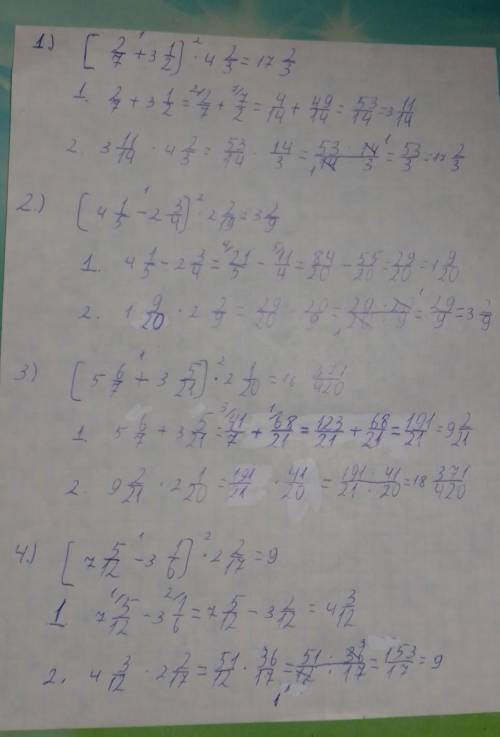 1.) [2/7 + 3 1/2] · 4 2/3 = 17 2/3
1. 2/7 + 3 1/2 = 2/7 + 7/2 = 4/14 + 49/14 = 53/14 = 3 11/14
2. 3 11/14 · 4 2/3 = 53/14 · 14/3 = 53 · 14/14 · 3 = 53/3 = 17 2/3
2.) [4 1/5 - 2 3/4] · 2 2/9 = 3 2/9
1. 4 1/5 - 2 3/4 = 21/5 - 11/4 = 84/20 - 55/20 = 29/20 = 1 9/20
2. 1 9/20 · 2 2/9 = 29/20 · 20/9 = 29 · 20/20 · 9 = 29/9 = 3 2/9
3) [5 6/7 + 3 5/21] · 2 1/20 = 18 371/420
1. 5 6/7 + 3 5/21 = 41/7 + 68/21 = 123/21 + 68/21 = 191/21 = 9 2/21
2. 9 2/21 · 2 1/20 = 191/21 · 41/20 = 191 · 41/21 · 20 = 18 371/420
4.) [7 5/12 - 3 1/6] · 2 2/17 = 9
1 7 5/12 - 3 1/6 = 7 5/12 - 3 2/12 = 4 3/12
2. 4 3/12 · 2 2/17 = 51/12 · 36/17 = 51 · 36/12 · 17 = 153/17 = 9